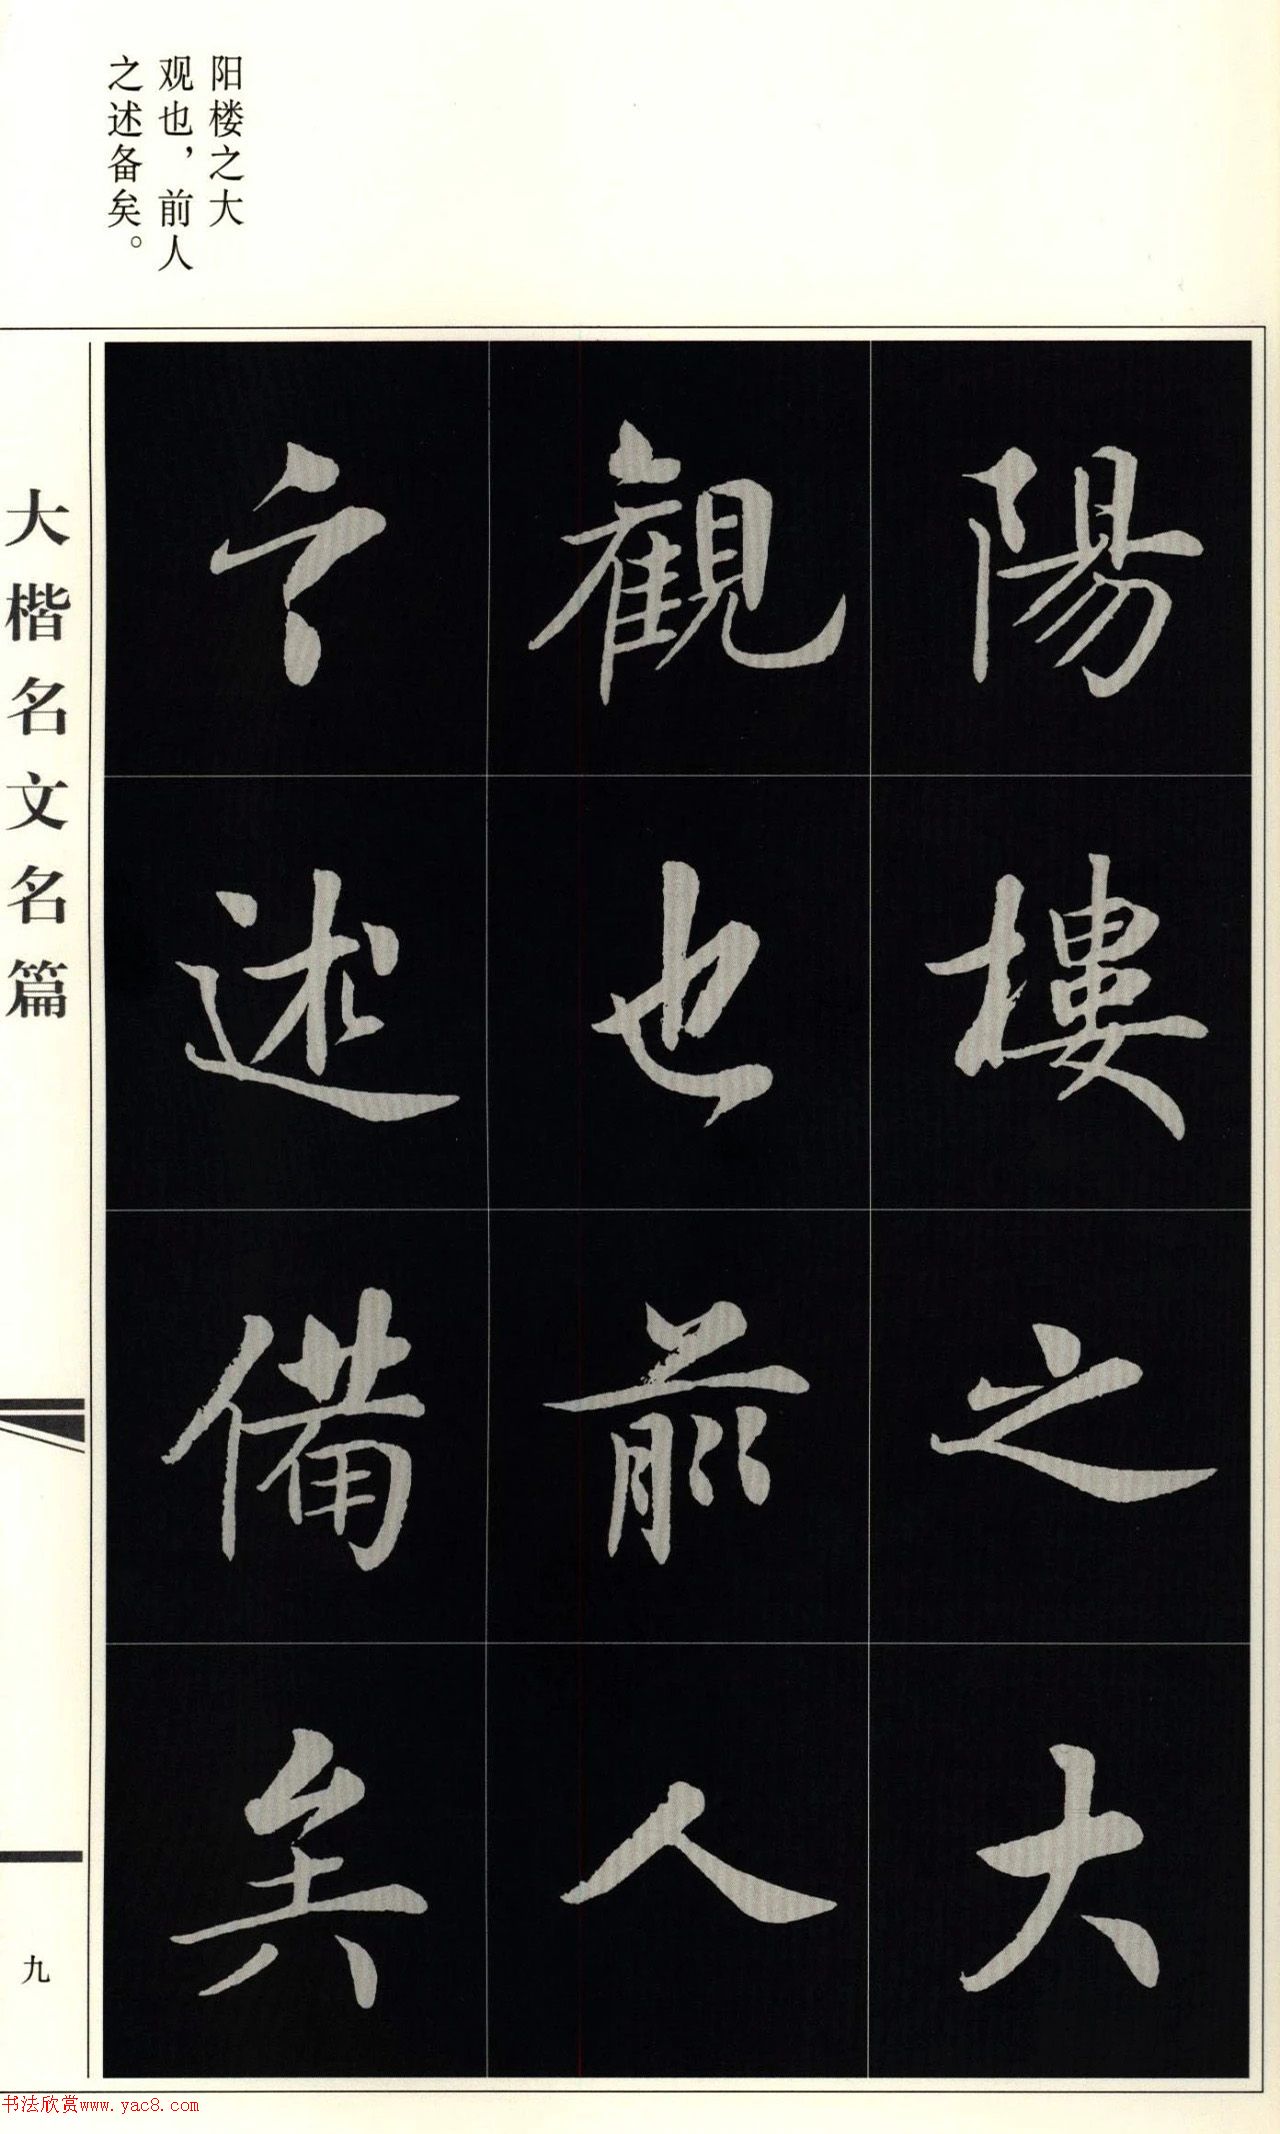 阳楼之大
观也，前人
之述备矣。
陽樓之大
觀也前人
之述備矣
大楷名文名篇
九
书法欣赏www.yac8.com